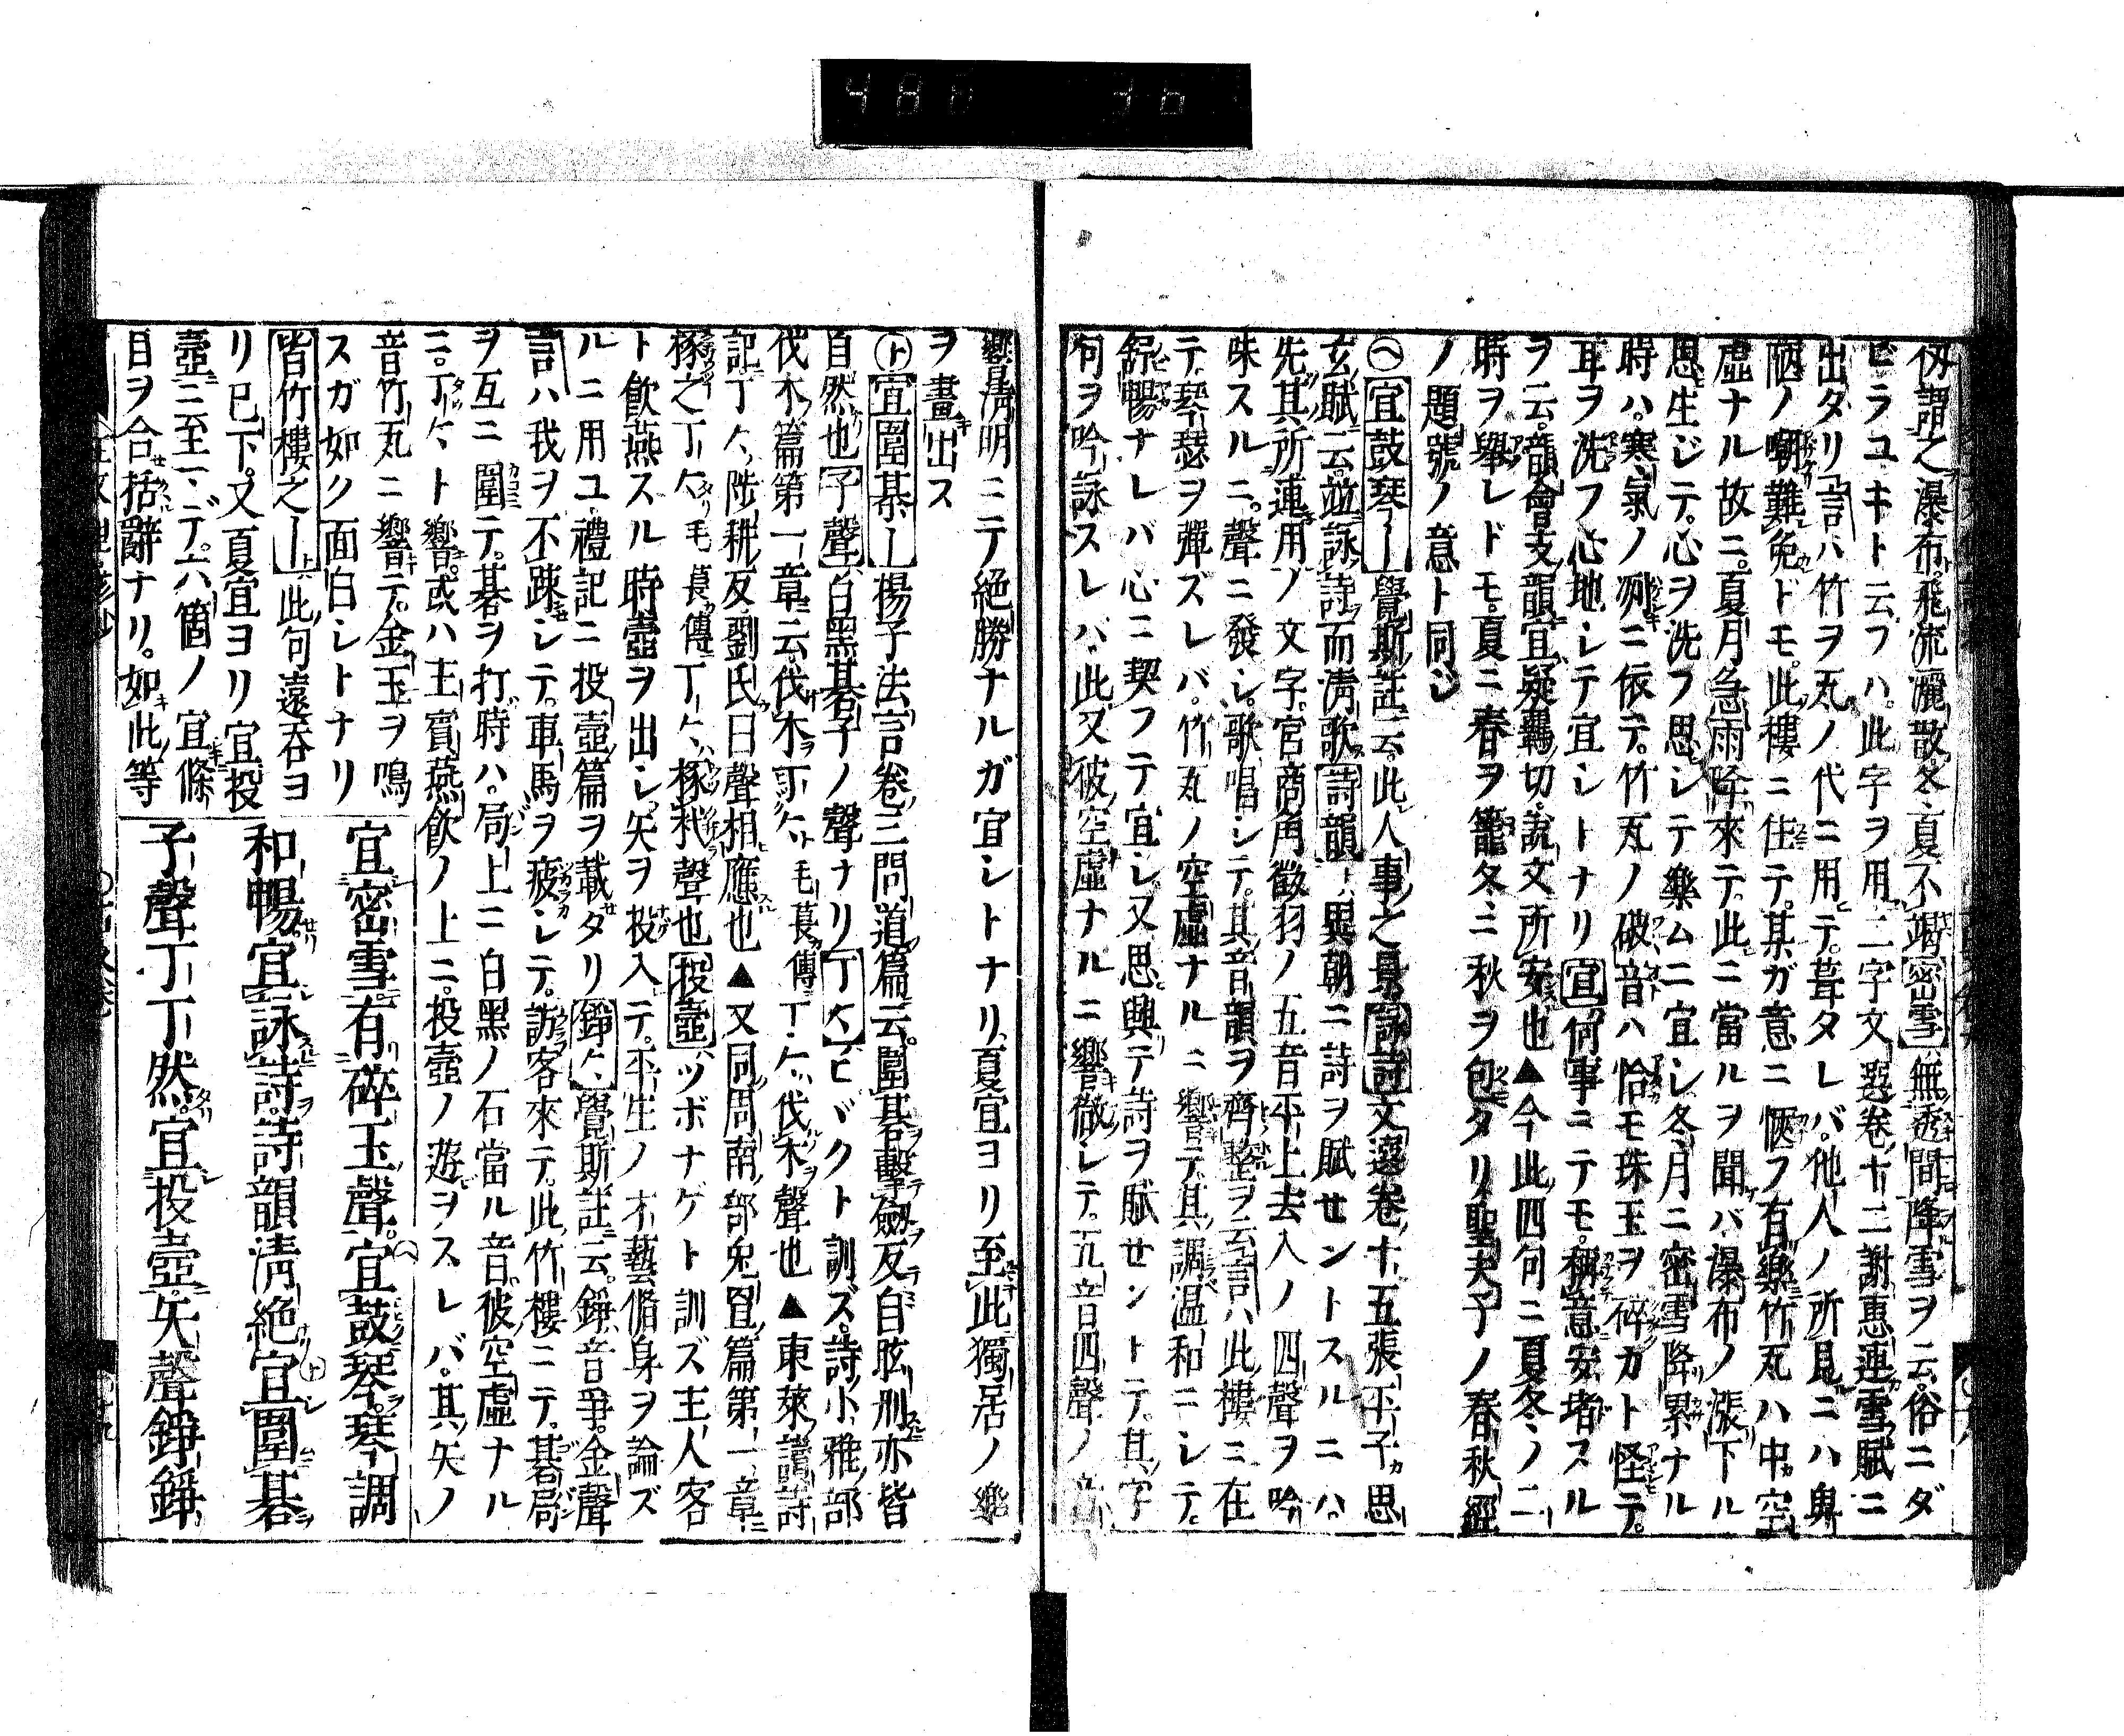 仭謂之瀑布飛流灑散冬夏不竭密雪無透間降雪ヲ云俗ニダ
ビラユキト云フハ此字ヲ用二字文選卷十二謝惠連雪賦ニ
出タリ言ハ竹ヲ瓦ノ代ニ用テ葺タレバ他人ノ所見ニハ與
陋ノ嘲難免ドモ此樓ニ住テ某ガ意ニ愜フ有樂竹瓦ハ中空
虛ナル故ニ夏月急雨降來テ此ニ當ルヲ聞バ瀑布ノ漲下ル
思生ジテ心ヲ洗フ思シテ樂ムニ宜シ冬月ニ密雪降累ナル
時ハ寒氣ノ冽ニ依テ竹瓦ノ破音ハ恰モ珠玉ヲ碎カト怪テ
耳ヲ洗フ心地シテ宜シトナリ宜何事ニテモ稱意安堵スル
ヲ云韻會支韻宜疑羈切說文所安也▲今此四句ニ夏冬ノ二
時ヲ舉レドモ夏ニ春ヲ籠冬ニ秋ヲ包タリ聖夫子ノ春秋經
ノ題號ノ意ト同ジ
㋬宜鼓琴ー覺斯註云此人事之景詠詩文選卷十五張平子思
玄賦云並詠詩而淸歌詩韻ハ異朝ニ詩ヲ賦セントスルニハ
先其所連用ノ文字宮商角徵羽ノ五音平上去入ノ四聲ヲ吟
味スルニ聲ニ發シ歌唱シテ其音韻ヲ齊整ヲ云言ハ此樓ニ在
テ琴瑟ヲ彈ズレバ竹瓦ノ空虛ナルニ響テ其調温和ニシテ
舒暢ナレバ心ニ契フテ宜シ又思興テ詩ヲ賦セントテ其字
句ヲ吟詠スレバ此又彼空虛ナルニ響徹シテ五音四聲ノ
響淸明ニテ絕勝ナルガ宜シトナリ夏宜ヨリ至此獨居ノ樂
ヲ畫出ス
㋣宜圍棊ー揚子法言卷三問道篇云圍棊擊劔反自眩刑亦皆
自然也子聲白黑碁子ノ聲ナリ丁々ヒヾクト訓ズ詩小雅部
伐木篇第一章云伐木丁々毛萇傳丁々伐木聲也▲東萊讀詩
記丁々陟耕反劉氏曰聲相應也▲又同周南部兔罝篇第一章
椓之丁々毛萇傳丁々椓杙聲也投壺ツボナゲト訓ズ主人客
ト飮燕スル時壺ヲ出シ矢ヲ投入テ平生ノ才藝脩身ヲ論ズ
ルニ用ユ禮記ニ投壺篇ヲ載タリ錚々覺斯註云錚音爭金聲
言ハ我ヲ不踈シテ車馬ヲ疲シテ訪客來テ此竹樓ニテ碁局
ヲ互ニ圍テ碁ヲ打時ハ局上ニ白黑ノ石當ル音彼空虛ナル
ニ丁々ト響或ハ主賓燕飮ノ上ニ投壺ノ遊ヲスレバ其矢ノ
音竹瓦ニ響テ金玉ヲ鳴
スガ如ク面白シトナリ
皆竹樓之ー此句遠呑ヨ
リ已下又夏宜ヨリ宜投
壺ニ至マデ六箇ノ宜條
目ヲ合括辭ナリ如此等
宜密雪有碎玉聲宜鼓琴琴調
和暢宜詠詩詩韻淸絕宜圍碁
子聲丁丁然宜投壺矢聲錚錚